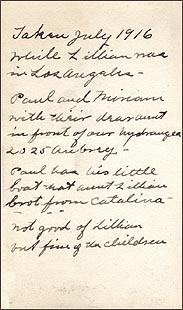 Taken July 1916
While Lillian was
in Los Angeles -
Paul and Miriam
with their dear aunt
in front of our hydrangea
2325 Aubrey -
Paul has his little
boat - that aunt Lillian
brot from Catalina -
not good of Lillian
but fine of the children